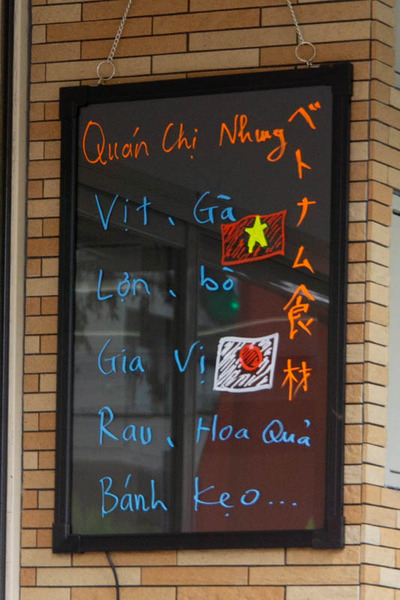 Quán Chị Nhung
Vịt、Gà
Lợn、bò
Gia Vị
Rau、Hoa Quả
Bánh Kẹo...
ベトナム食材